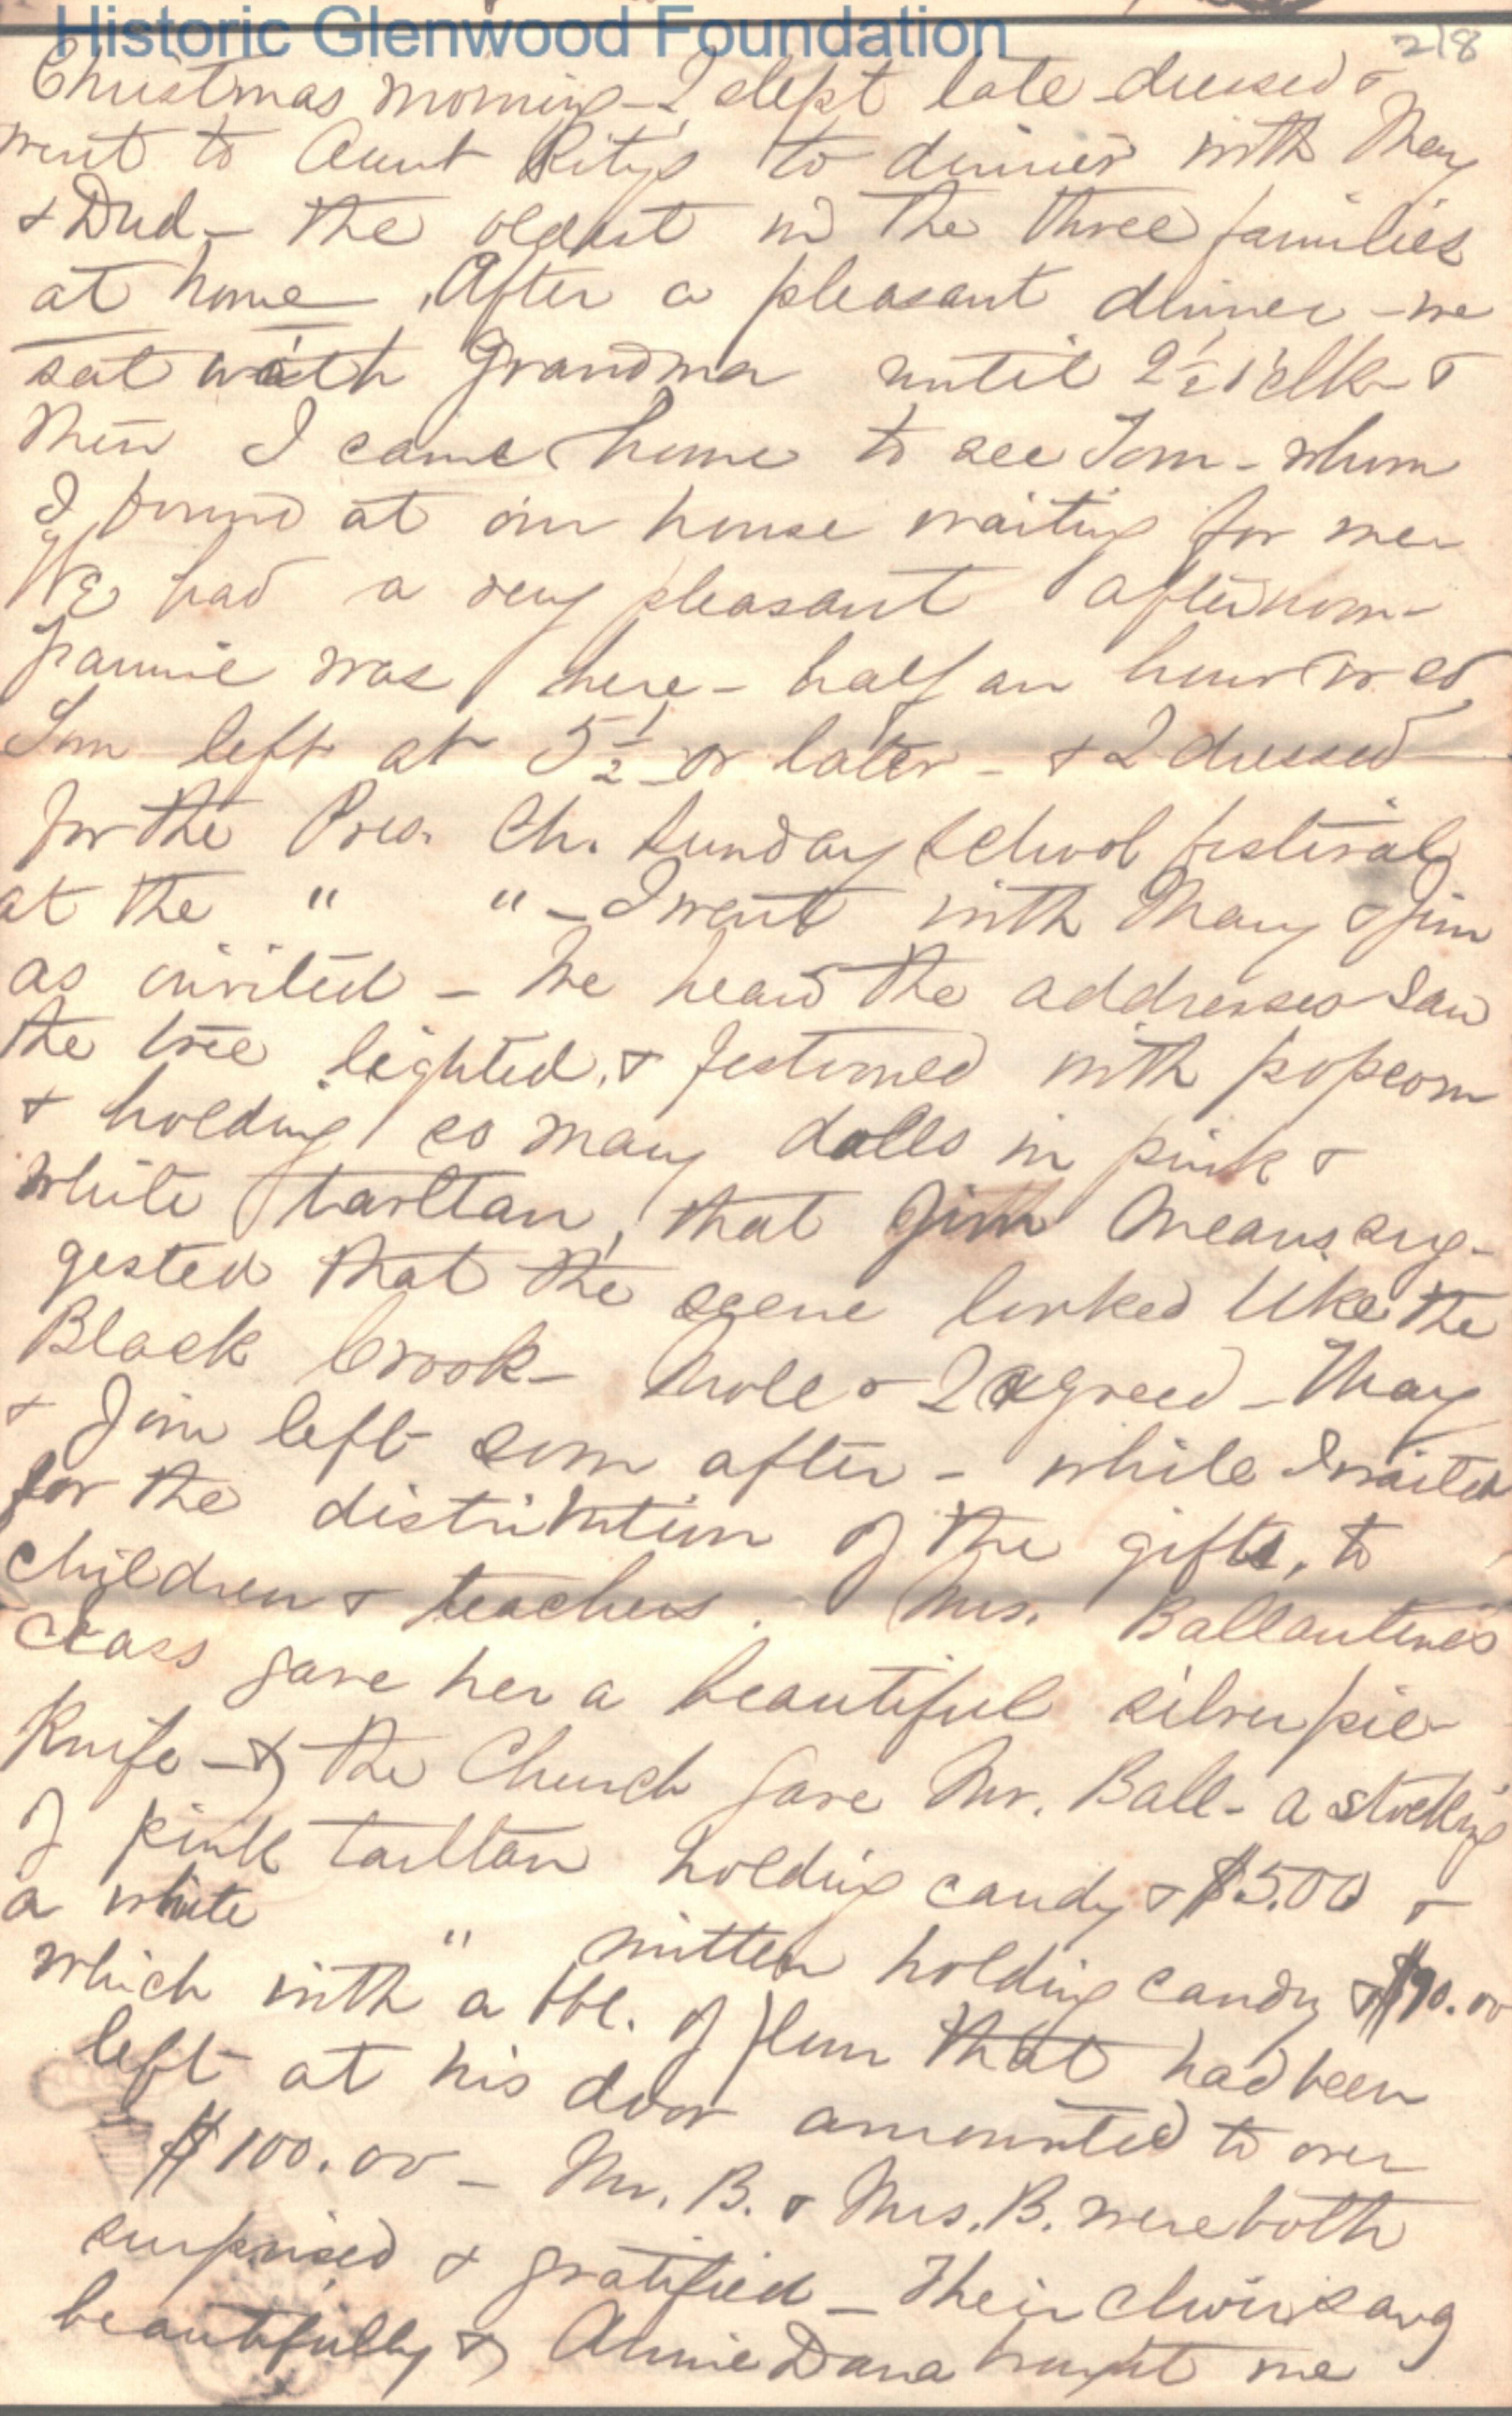 Historic Glenwood Foundation
218
Christmas morning - I slept late - dressed &
went to Aunt Kitys to dinner with Mary
& Dud - the oldest in the three families
at home. After a pleasant dinner - we
sat with Grandma until 2½ o'clk - &
then I came home to see Tom - whom
I found at our house waiting for me -
We had a very pleasant afternoon -
Fannie was here - half an hour or so,
Tom left at 5½ or later - & I dressed
for the Pres. Ch. Sunday School festival
at the " " - I went with Mary & Jim
as invited - We heard the addresses - saw
the tree lighted, & festooned with popcorn
& holding so many dolls in pink &
white tarltan, that Jim Means sug-
gested that the scene looked like the
Black Crook - Mole & I agreed - Mary
& Jim left soon after - while I waited
for the distribution of the gifts, to
children & teachers. Mrs. Ballantines
class gave her a beautiful silver pie
Knife - & the Church gave Mr. Ball - a stocking
of pink tarltan holding candy & $5.00 &
a white " mitten holding candy & $90.00
which with a bbl. of flour that had been
left at his door amounted to over
$100.00 - Mr. B. & Mrs. B. were both
surprised & gratified - Their choir sang
beautifully & Annie Dana brought me